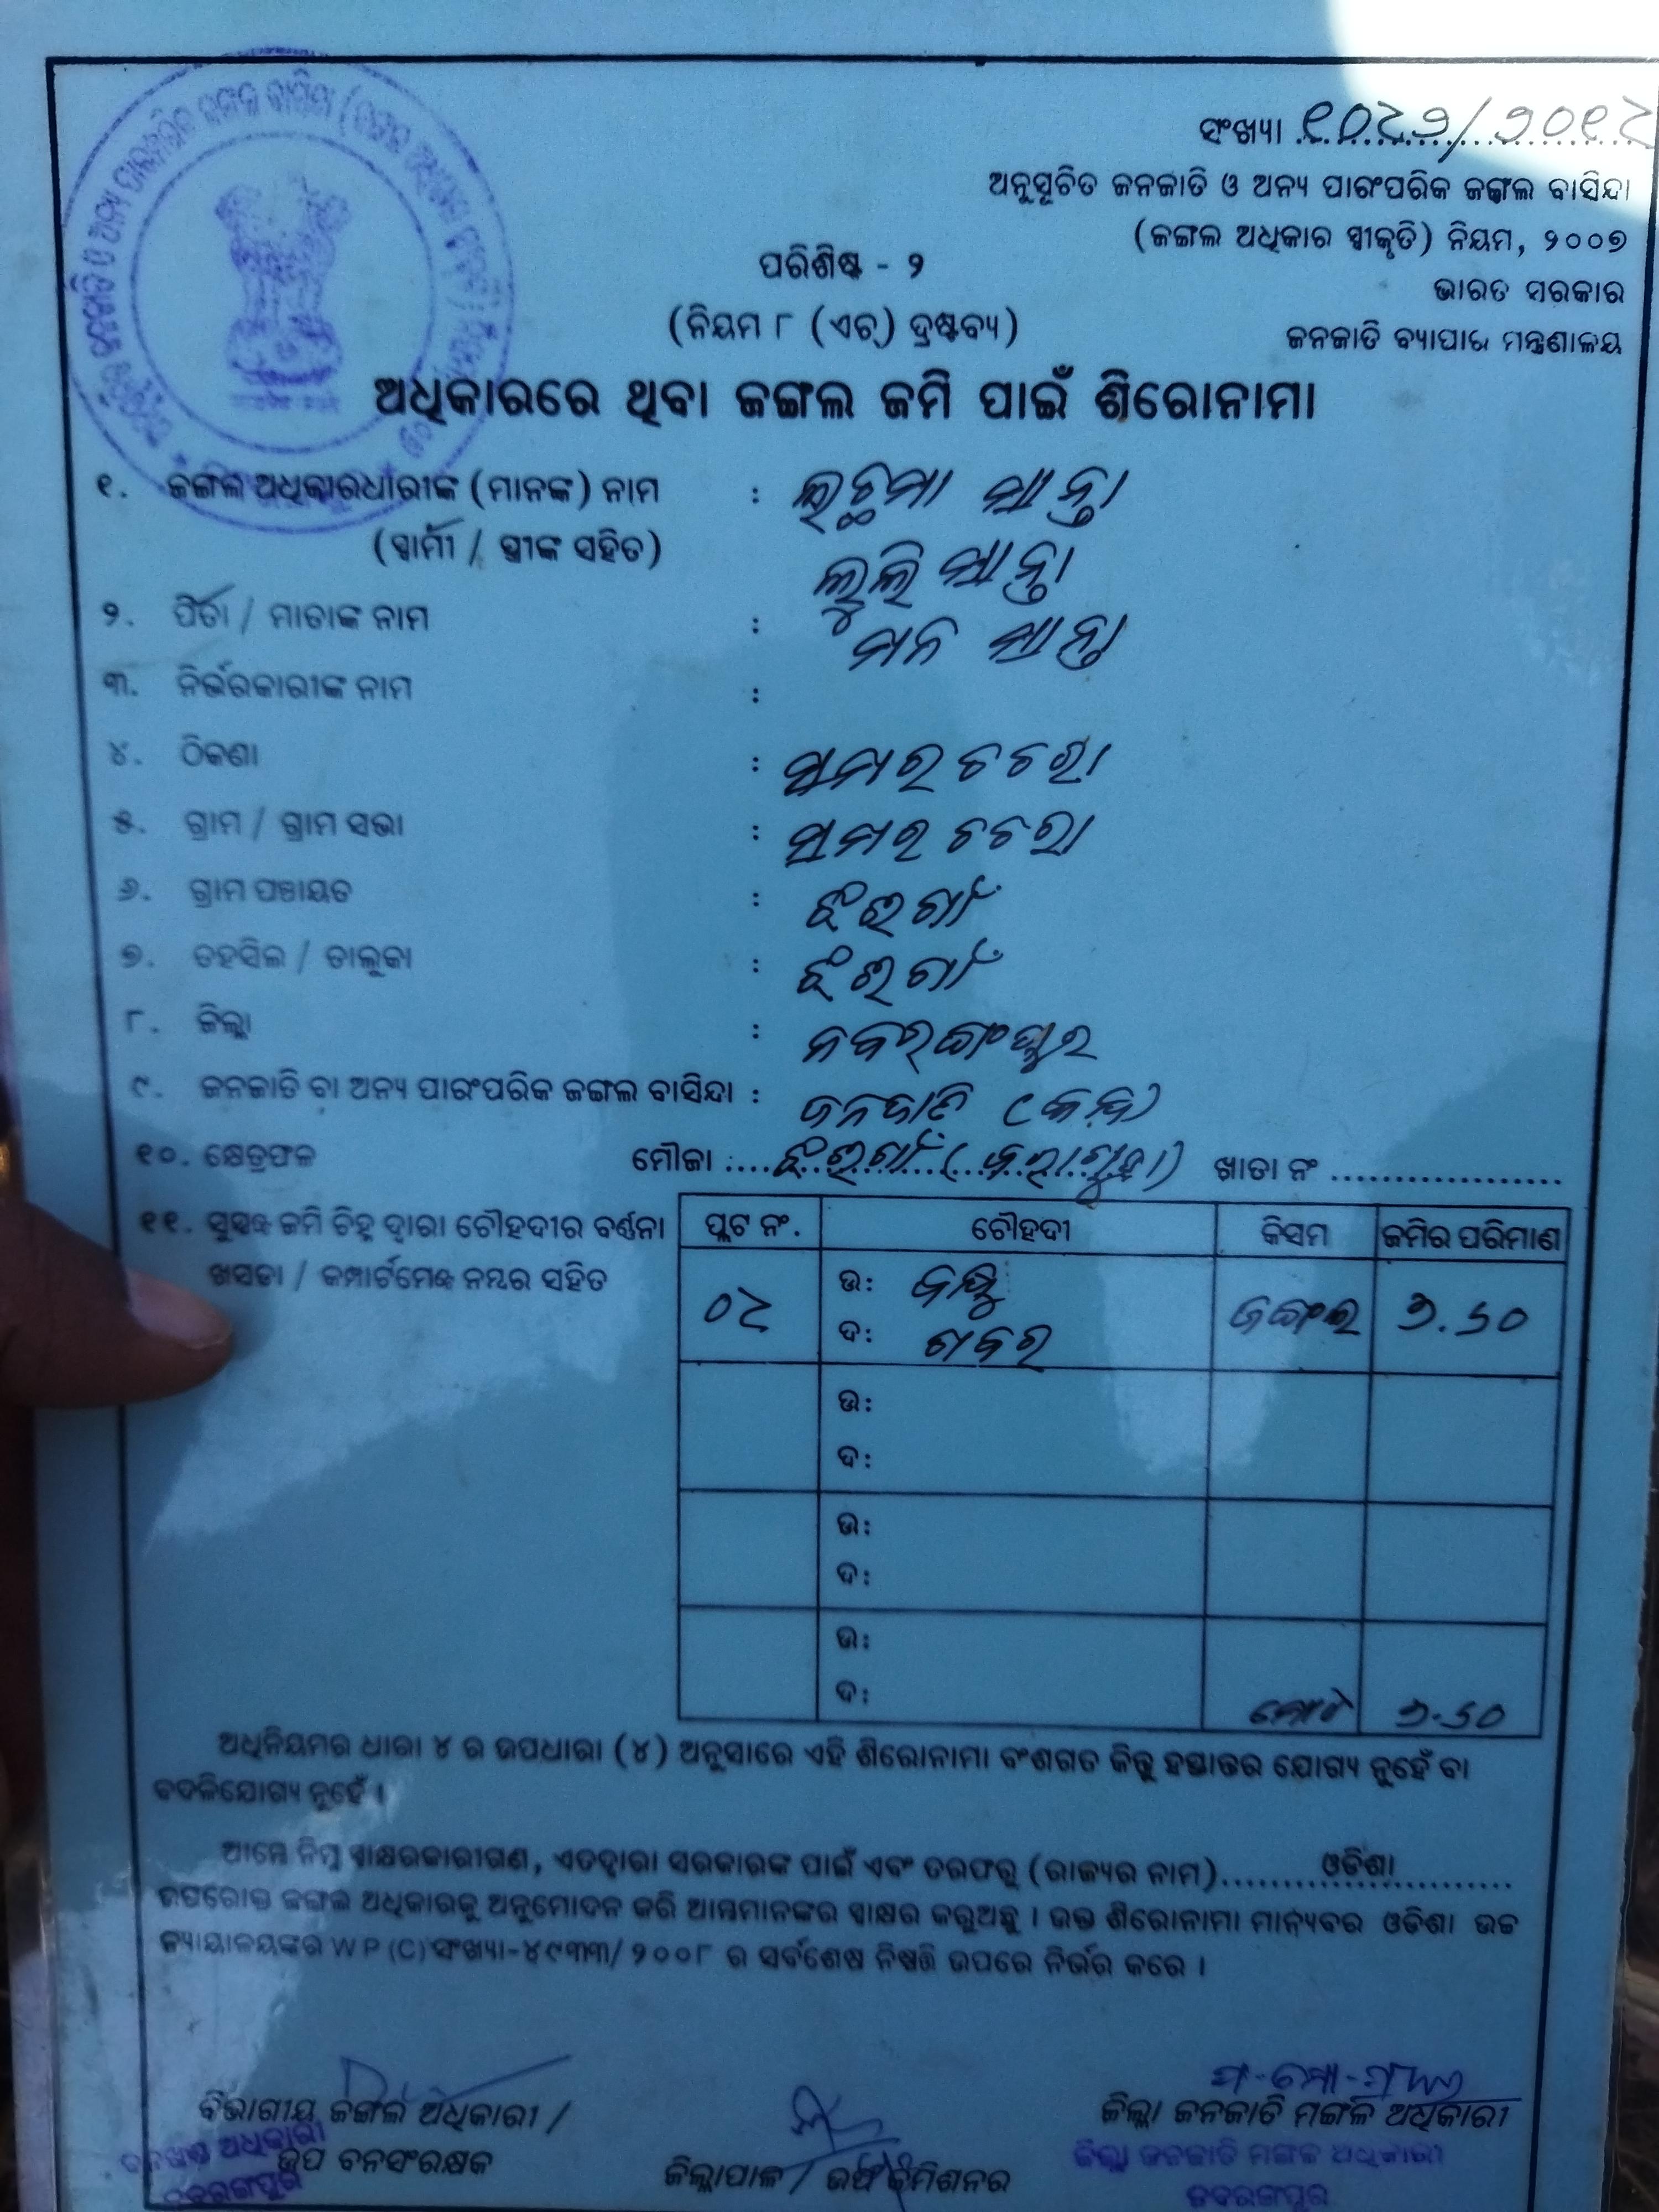 ସଂଖ୍ୟା ୧୦୨୬/୨୦୧୨
ଅନୁସୂଚିତ ଜନଜାତି ଓ ଅନ୍ୟ ପାରଂପରିକ ଜଙ୍ଗଲ ବାସିନ୍ଦା
(ଜଙ୍ଗଲ ଅଧିକାର ସ୍ଵୀକୃତି) ନିୟମ, ୨୦୦୭
ପରିଶିଷ୍ଟ - ୨
ଭାରତ ସରକାର
(ନିୟମ ୮ (ଏଚ୍) ଦ୍ରଷ୍ଟବ୍ୟ)
ଜନଜାତି ବ୍ୟାପାର ମନ୍ତ୍ରଣାଳୟ
ଅଧିକାରରେ ଥିବା ଜଙ୍ଗଲ ଜମି ପାଇଁ ଶିରୋନାମା
୧. ଜଙ୍ଗଲ ଅଧିକାରଧାରୀଙ୍କ (ମାନଙ୍କ) ନାମ :
(ସ୍ଵାମୀ / ସ୍ତ୍ରୀଙ୍କ ସହିତ)
୨. ପିତା / ମାତାଙ୍କ ନାମ :
୩. ନିର୍ଭରକାରୀଙ୍କ ନାମ :
୪. ଠିକଣା :
୫. ଗ୍ରାମ / ଗ୍ରାମ ସଭା :
୬. ଗ୍ରାମ ପଞ୍ଚାୟତ : ଝରିଗାଁ
୭. ତହସିଲ / ତାଲୁକା : ଝରିଗାଁ
୮. ଜିଲ୍ଲା : ନବରଙ୍ଗପୁର
୯. ଜନଜାତି ବା ଅନ୍ୟ ପାରଂପରିକ ଜଙ୍ଗଲ ବାସିନ୍ଦା : ଜନଜାତି
୧୦. କ୍ଷେତ୍ରଫଳ ମୌଜା .... ଝରିଗାଁ ଖାତା ନଂ ..................
୧୧. ସୁସ୍ପଷ୍ଟ ଜମି ଚିହ୍ନ ଦ୍ଵାରା ଚୌହଦୀର ବର୍ଣ୍ଣନା
ଖସଡା / କମ୍ପାର୍ଟମେଣ୍ଟ ନମ୍ବର ସହିତ
ପ୍ଲଟ ନଂ. ଚୌହଦୀ କିସମ ଜମିର ପରିମାଣ
୦୨ ଉ: ଜଙ୍ଗଲ ୨.୫୦
ଦ:
ଉ:
ଦ:
ଉ:
ଦ:
ଉ:
ଦ: ମୋଟ ୨.୫୦
ଅଧିନିୟମର ଧାରା ୪ ର ଉପଧାରା (୪) ଅନୁସାରେ ଏହି ଶିରୋନାମା ବଂଶଗତ କିନ୍ତୁ ହସ୍ତାନ୍ତର ଯୋଗ୍ୟ ନୁହେଁ ବା
ବଦଳିଯୋଗ୍ୟ ନୁହେଁ ।
ଆମ୍ଭେ ନିମ୍ନ ସ୍ଵାକ୍ଷରକାରୀଗଣ, ଏତଦ୍ଵାରା ସରକାରଙ୍କ ପାଇଁ ଏବଂ ତରଫରୁ (ରାଜ୍ୟର ନାମ)........ଓଡିଶା........
ଉପରୋକ୍ତ ଜଙ୍ଗଲ ଅଧିକାରକୁ ଅନୁମୋଦନ କରି ଆମ୍ଭମାନଙ୍କର ସ୍ଵାକ୍ଷର କରୁଅଛୁ । ଉକ୍ତ ଶିରୋନାମା ମାନ୍ୟବର ଓଡିଶା ଉଚ୍ଚ
ନ୍ୟାୟାଳୟଙ୍କର W P (C) ସଂଖ୍ୟା-୪୯୩୩/୨୦୦୮ ର ସର୍ବଶେଷ ନିଷ୍ପତ୍ତି ଉପରେ ନିର୍ଭର କରେ ।
ବିଭାଗୀୟ ଜଙ୍ଗଲ ଅଧିକାରୀ /
ଉପ ବନସଂରକ୍ଷକ
ଜିଲ୍ଲାପାଳ / ଉପ କମିଶନର
ଜିଲ୍ଲା ଜନଜାତି ମଙ୍ଗଳ ଅଧିକାରୀ
ଜିଲ୍ଲା ଜନଜାତି ମଙ୍ଗଳ ଅଧିକାରୀ
ନବରଙ୍ଗପୁର